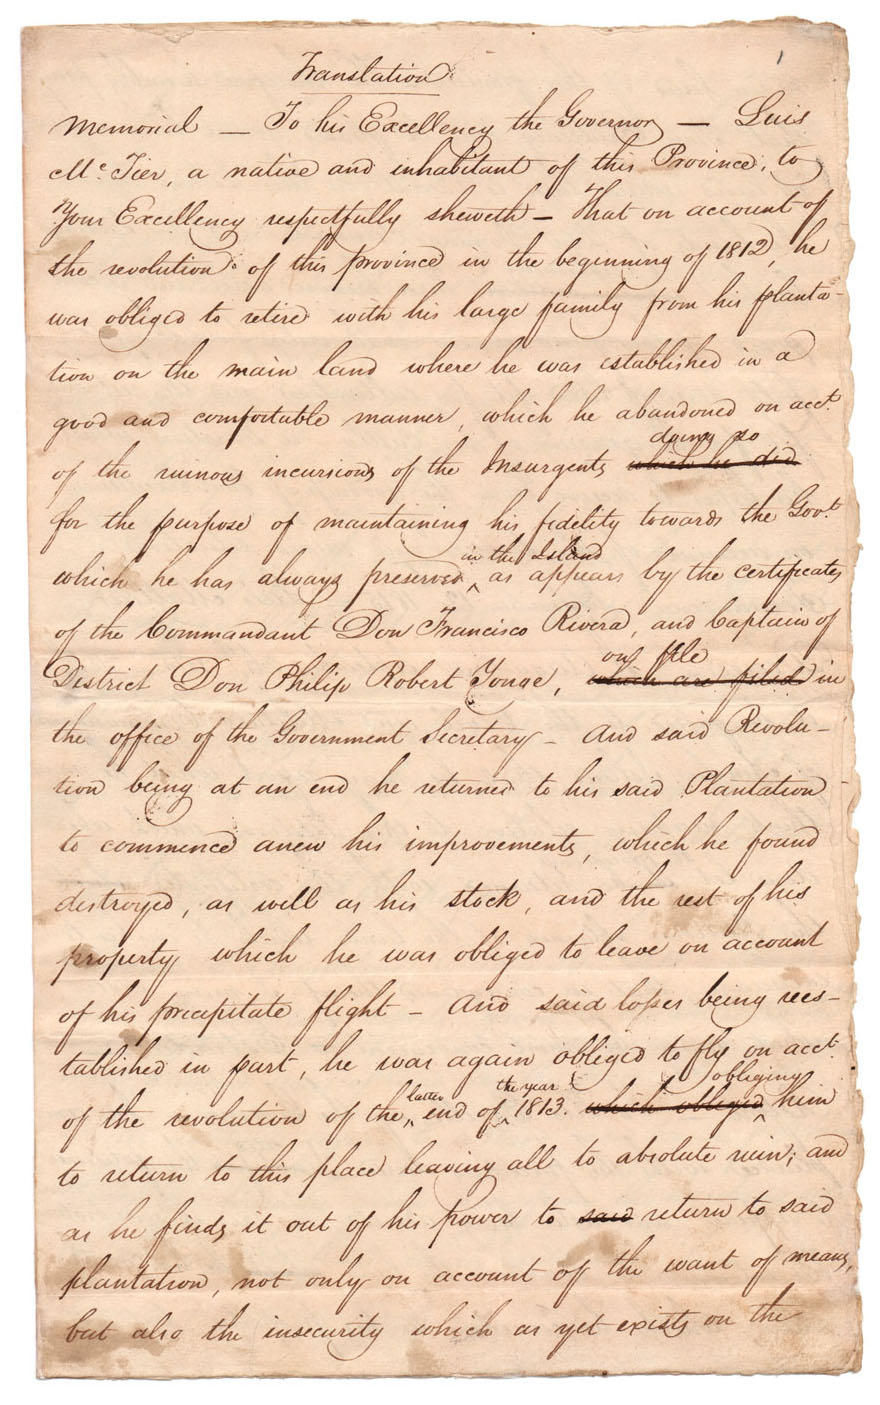 1
Translation
Memorial — To his Excellency the Governor — Luis
Mc. Tier, a native and inhabitant of this Province, to
Your Excellency respectfully sheweth — That on account of
the revolution of this province in the beginning of 1812, he
was obliged to retire with his large family from his planta-
tion on the main land where he was established in a
good and comfortable manner, which he abandoned on acct.
doing so
of the ruinous incursions of the Insurgents which he did
for the purpose of maintaining his fidelity towards the Govt.
in the Island
which he has always preserved ‸ as appears by the certificates
of the Commandant Don Francisco Rivera, and Captain of
on file
District Don Philip Robert Yonge, which are filed in
the office of the Government Secretary — And said Revolu-
tion being at an end he returned to his said Plantation
to commence anew his improvements, which he found
destroyed, as well as his stock, and the rest of his
property which he was obliged to leave on account
of his precipitate flight — And said losses being rees-
tablished in part, he was again obliged to fly on acct.
latter the year obliging
of the ‸ end of ‸ 1813. which obliged ‸ him
to return to this place leaving all to absolute ruin; and
as he finds it out of his power to said return to said
plantation, not only on account of the want of means,
but also the insecurity which as yet exists on the